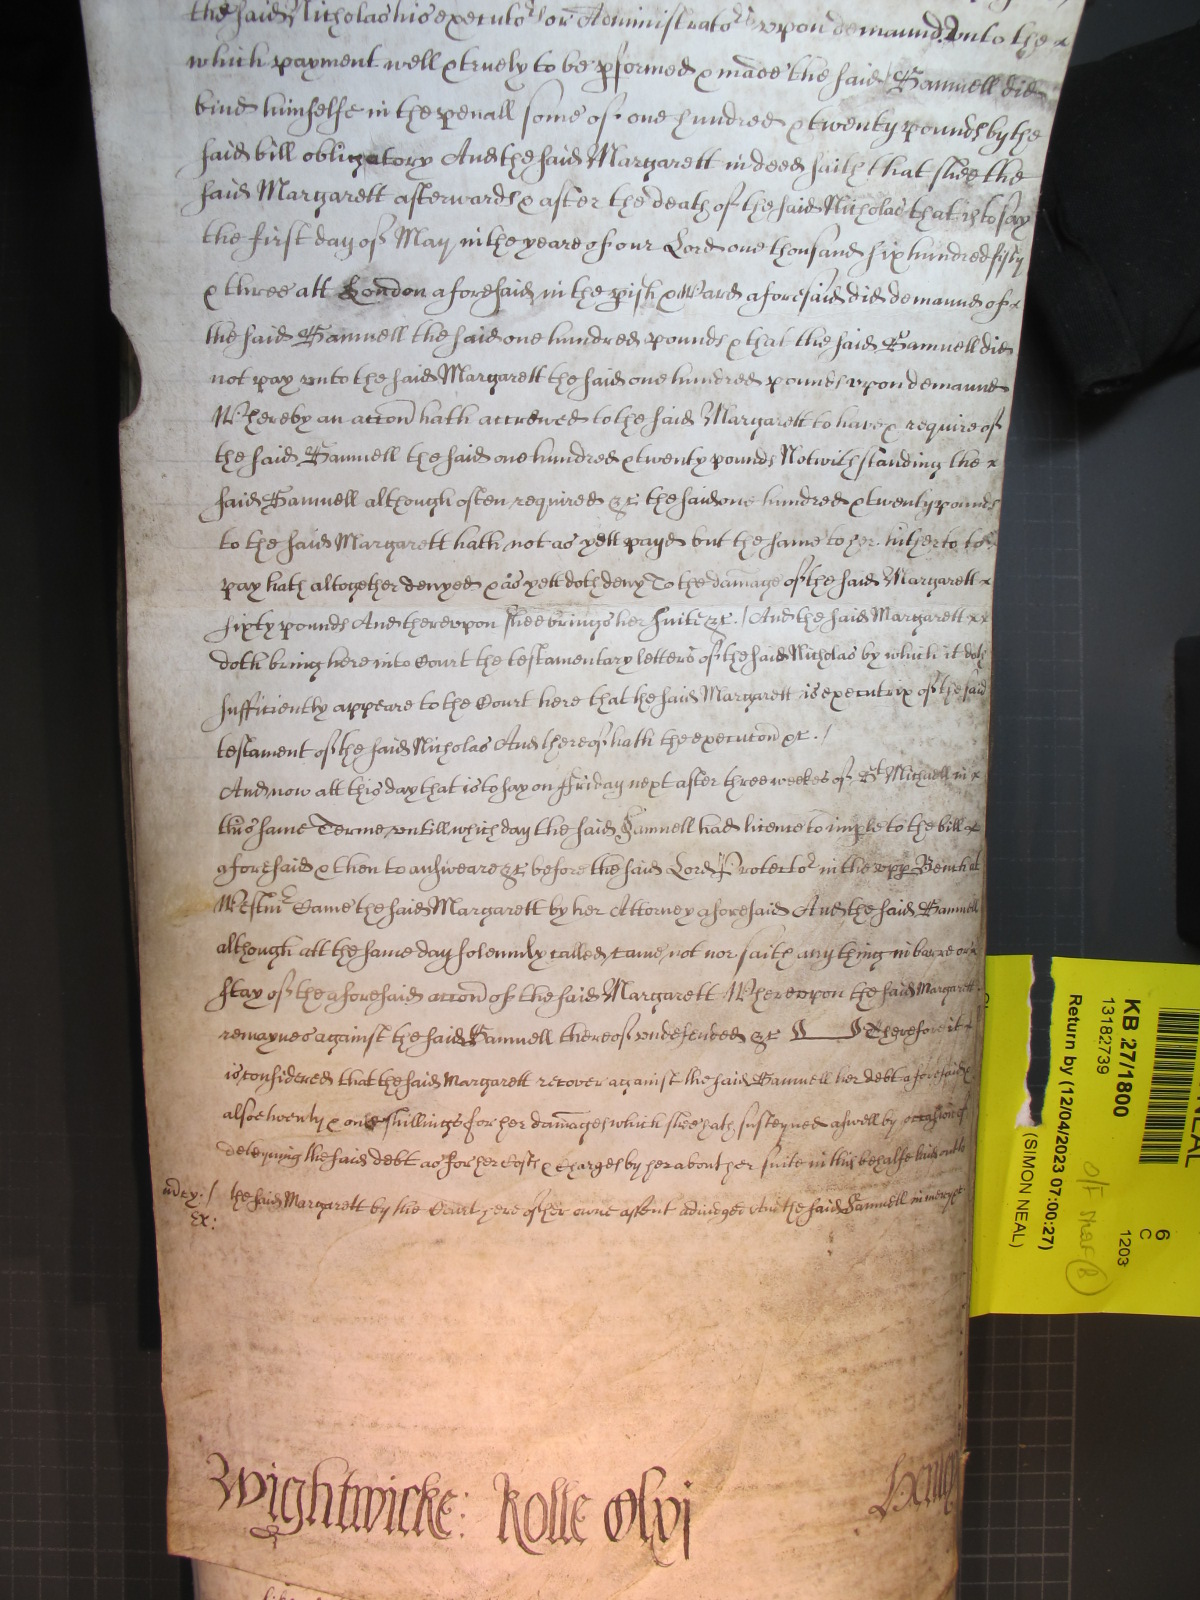 the said Nicholas his executors or Administrators vpon demaund Vnto the x
which payment well & truely to be pformed & made the said Samuell did
bind himselfe in the penall some of one hundred & twenty pounds by the
said bill obligatory And the said Margarett in deed saith that shee the
said Margarett afterwards & after the death of the said Nicholas that is to say
the first day of May in the yeare of our Lord one thousand six hundred fifty
& three att London aforesaid in the pish & Ward aforesaid did demaund of x
the said Samuell the said one hundred pounds & that the said Samuell did
not pay vnto the said Margarett the said one hundred pounds vpon demaund
Whereby an accon hath accrewed to the said Margarett to have & require of
the said Samuell the said one hundred & twenty pounds Notwithstanding the x
said Samuell although often required &c the said one hundred & twenty pounds
to the said Margarett hath not as yett payd but the same to her hitherto to
pay hath altogether denyed & as yett doth deny To the damage of the said Margarett x
sixty pounds And therevpon shee brings her suite &c. / And the said Margarett x x
doth bring here into Court the testamentary letters of the said Nicholas by which it doth
sufficiently appeare to the Court here that the said Margarett is executrix of the said
testament of the said Nicholas And thereof hath the execucon &c. /
And now att this day that is to say on ffriday next after three weekes of St Michaell in x
this same Terme, vntill which day the said Samuell had licence to imple to the bill x
aforesaid & then to answeare &c before the said Lord Protector in the vpp Bench at
Westmr Came the said Margarett by her Attorney aforesaid And the said Samuell
although att the same day solemnly called came not nor saith any thing in barre or x
stay of the aforesaid accon of the said Margarett Wherevpon the said Margarett
remaynes against the said Samuell thereof vndefended &c Therefore it
is considered that the said Margarett recover against the said Samuell her debt aforesaid &
alsoe twenty & one shillings for her damages which shee hath susteyned aswell by occasion of
deteyning the said debt as for her costs & charges by her about her suite in this behalfe laid out to
the said Margarett by the Court here of her owne assent adiudged And the said Samuell in mercy &c
Ex:
Wightwicke: Rolle Olyj
KB 27/1800
13182739
Return by (12/04/2023 07:00:27)
(SIMON NEAL)
6
C
1203
NEAL